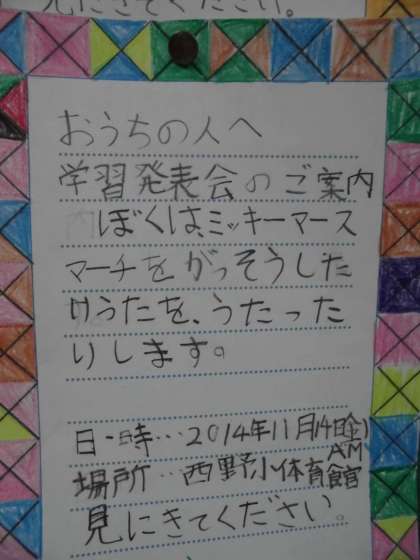 見にきてください。
おうちの人へ
学習発表会のご案内
ぼくは、ミッキーマース
マーチをがっそうした
りうたを、うたった
りします。
日時…2014年11月14日(金)
AM
場所…西野小体育館
見にきてください。